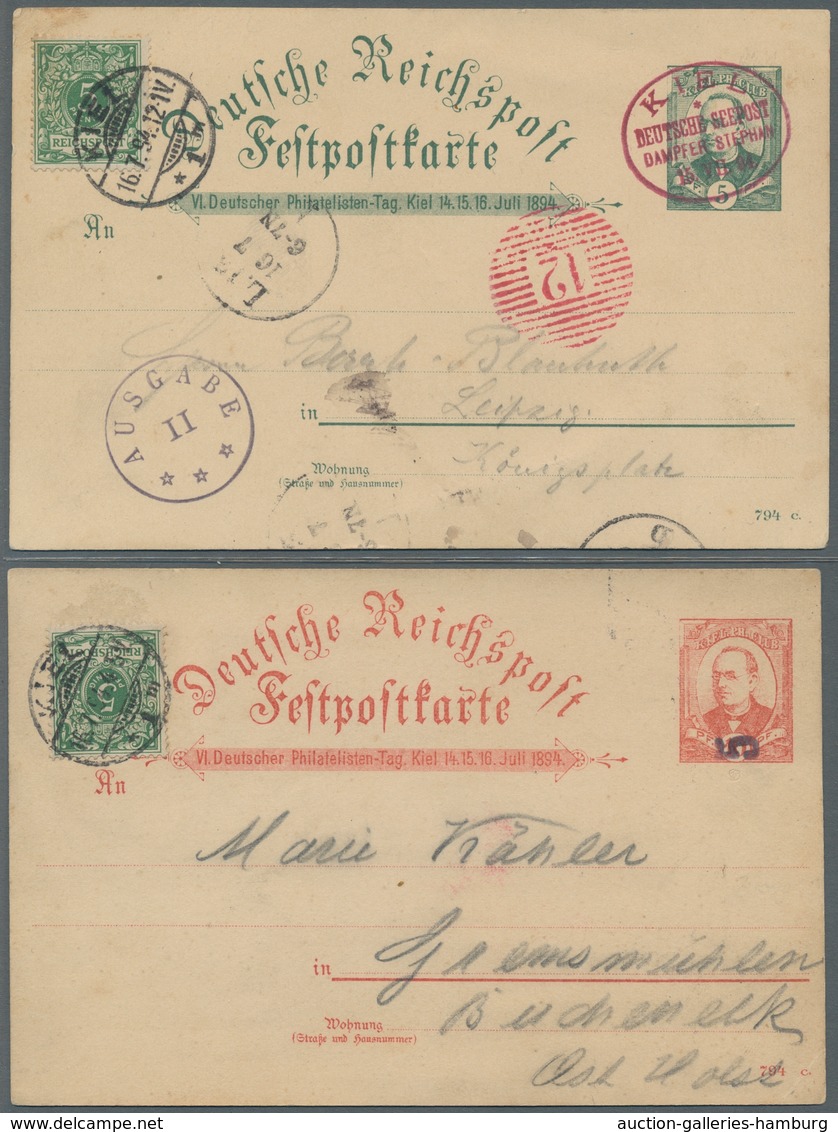 Deutsche Reichspost
Festpostkarte
VI. Deutscher Philatelisten-Tag. Kiel 14. 15. 16. Juli 1894.
REICHSPOST
KIEL
16.7.94. 12-1V.
* 1
KIEL. PH. CLUB
5
KIEL
*
DEUTSCHE SEEPOST
DAMPFER STEPHAN
An
16 7
6-7N
12
AUSGABE
II
in Leipzig.
Wohnung
(Straße und Hausnummer)
Königsplatz
794 c.
Deutsche Reichspost
Festpostkarte
VI. Deutscher Philatelisten-Tag. Kiel 14. 15. 16. Juli 1894.
REICHSPOST
5
KIEL
KIEL. PH. CLUB
5
An
Marie Kähler
in Gremsmühlen
Wohnung
(Straße und Hausnummer)
Ost Holst
794 c.
auction-galleries-hamburg